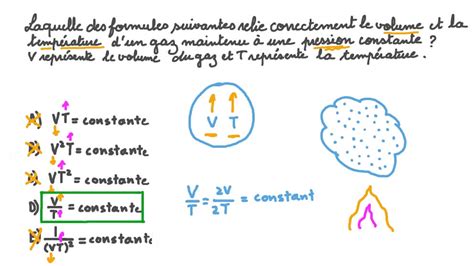 Laquelle des formules suivantes relie correctement le volume et la
température d'un gaz maintenu à une pression constante ?
V représente le volume du gaz et T représente la température.
A) VT = constante
B) V²T = constante
C) VT² = constante
D) V/T = constante
E) 1/(VT)² = constante
V T
V/T = 2V/2T = constant